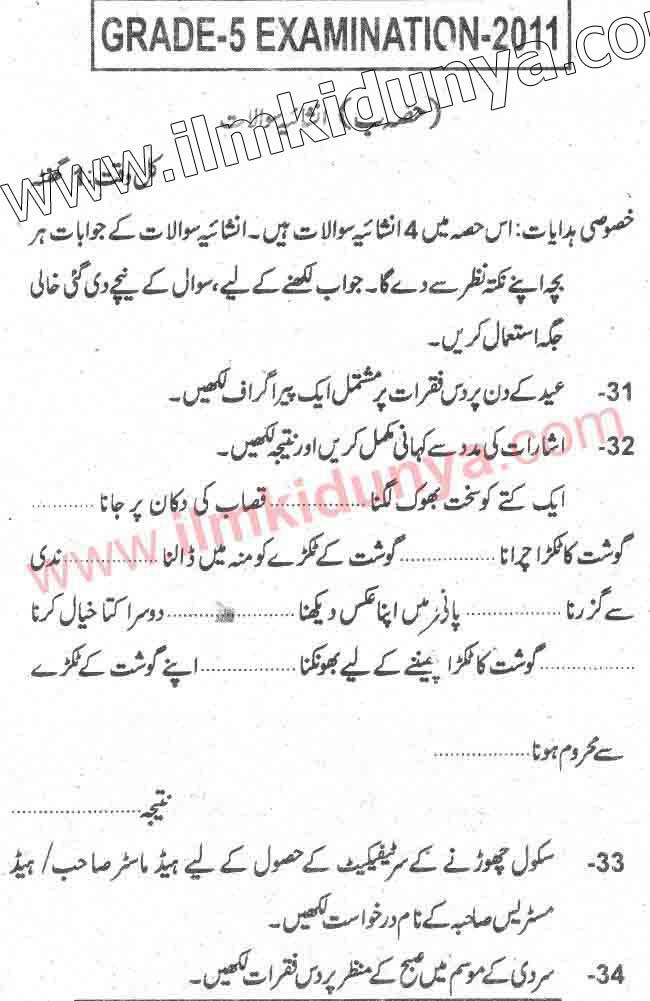 GRADE-5 EXAMINATION-2011
www.ilmkidunya.com
(حصہ ب) انشائیہ سوالات
کل وقت: 1 گھنٹہ
خصوصی ہدایات: اس حصہ میں 4 انشائیہ سوالات ہیں۔ انشائیہ سوالات کے جوابات ہر
بچہ اپنے نکتہ نظر سے دے گا۔ جواب لکھنے کے لیے، سوال کے نیچے دی گئی خالی
جگہ استعمال کریں۔
31- عید کے دن پر دس فقرات پر مشتمل ایک پیراگراف لکھیں۔
32- اشارات کی مدد سے کہانی مکمل کریں اور نتیجہ لکھیں۔
www.ilmkidunya.com
ایک کتے کو سخت بھوک لگنا .................. قصاب کی دکان پر جانا ............
گوشت کا ٹکڑا چرانا .................. گوشت کے ٹکڑے کو منہ میں ڈالنا .................. ندی
سے گزرنا .................. پانی میں اپنا عکس دیکھنا .................. دوسرا کتا خیال کرنا
.................. گوشت کا ٹکڑا چھیننے کے لیے بھونکنا .................. اپنے گوشت کے ٹکڑے
سے محروم ہونا ..................
نتیجہ ......................
33- سکول چھوڑنے کے سرٹیفیکیٹ کے حصول کے لیے ہیڈ ماسٹر صاحب/ ہیڈ
مسٹریس صاحبہ کے نام درخواست لکھیں۔
34- سردی کے موسم میں صبح کے منظر پر دس فقرات لکھیں۔